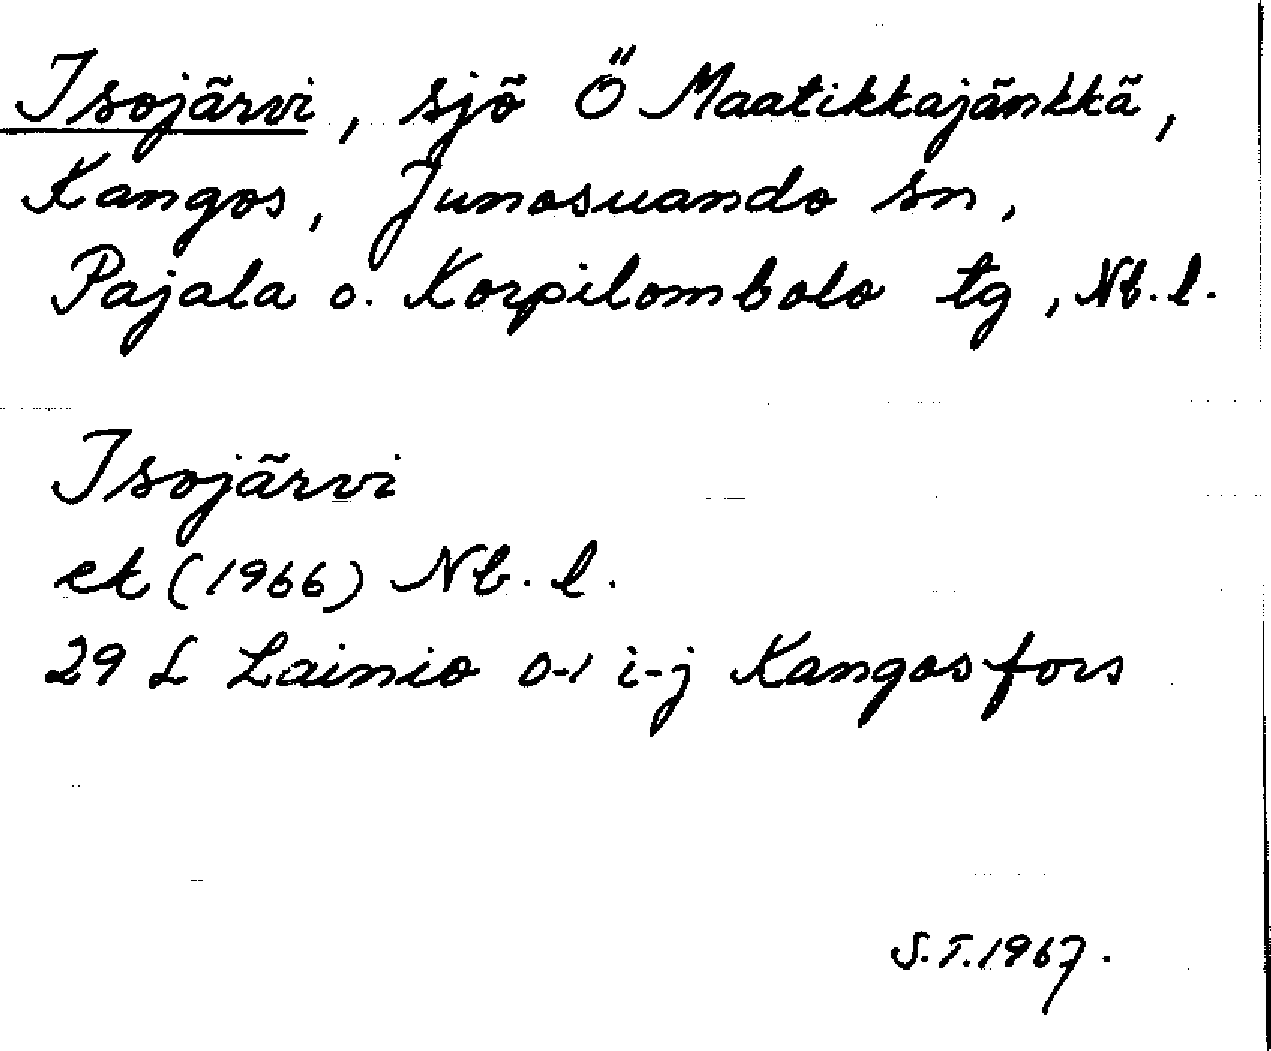 Isojärvi, sjö Ö Maatikkajänkkä,
Kangos, Junosuando sn,
Pajala o. Korpilombolo tg, Nb. l.
Isojärvi
ek (1966) Nb. l.
29 L Lainio 0-1 i-j Kangosfors
S.T. 1967.